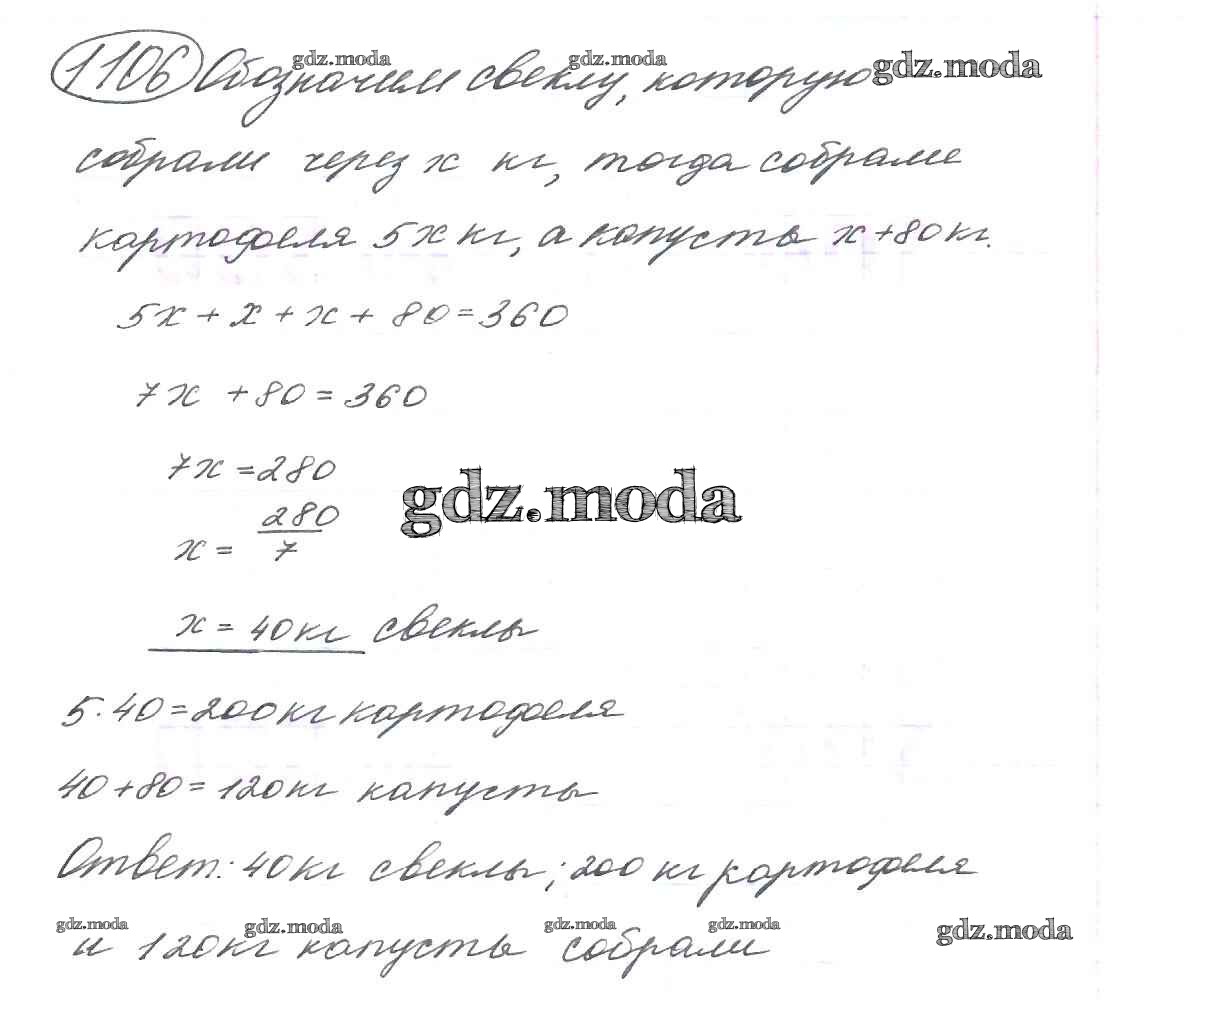 1106 Обозначим свеклу, которую
gdz.moda gdz.moda gdz.moda
собрали через x кг, тогда собрали
картофеля 5x кг, а капусты x+80кг.
5x + x + x + 80 = 360
7x + 80 = 360
7x = 280
gdz.moda
x = 280/7
x = 40кг свеклы
5·40=200кг картофеля
40+80=120кг капусты
Ответ: 40кг свеклы; 200 кг картофеля
gdz.moda gdz.moda gdz.moda gdz.moda gdz.moda
и 120кг капусты собрали